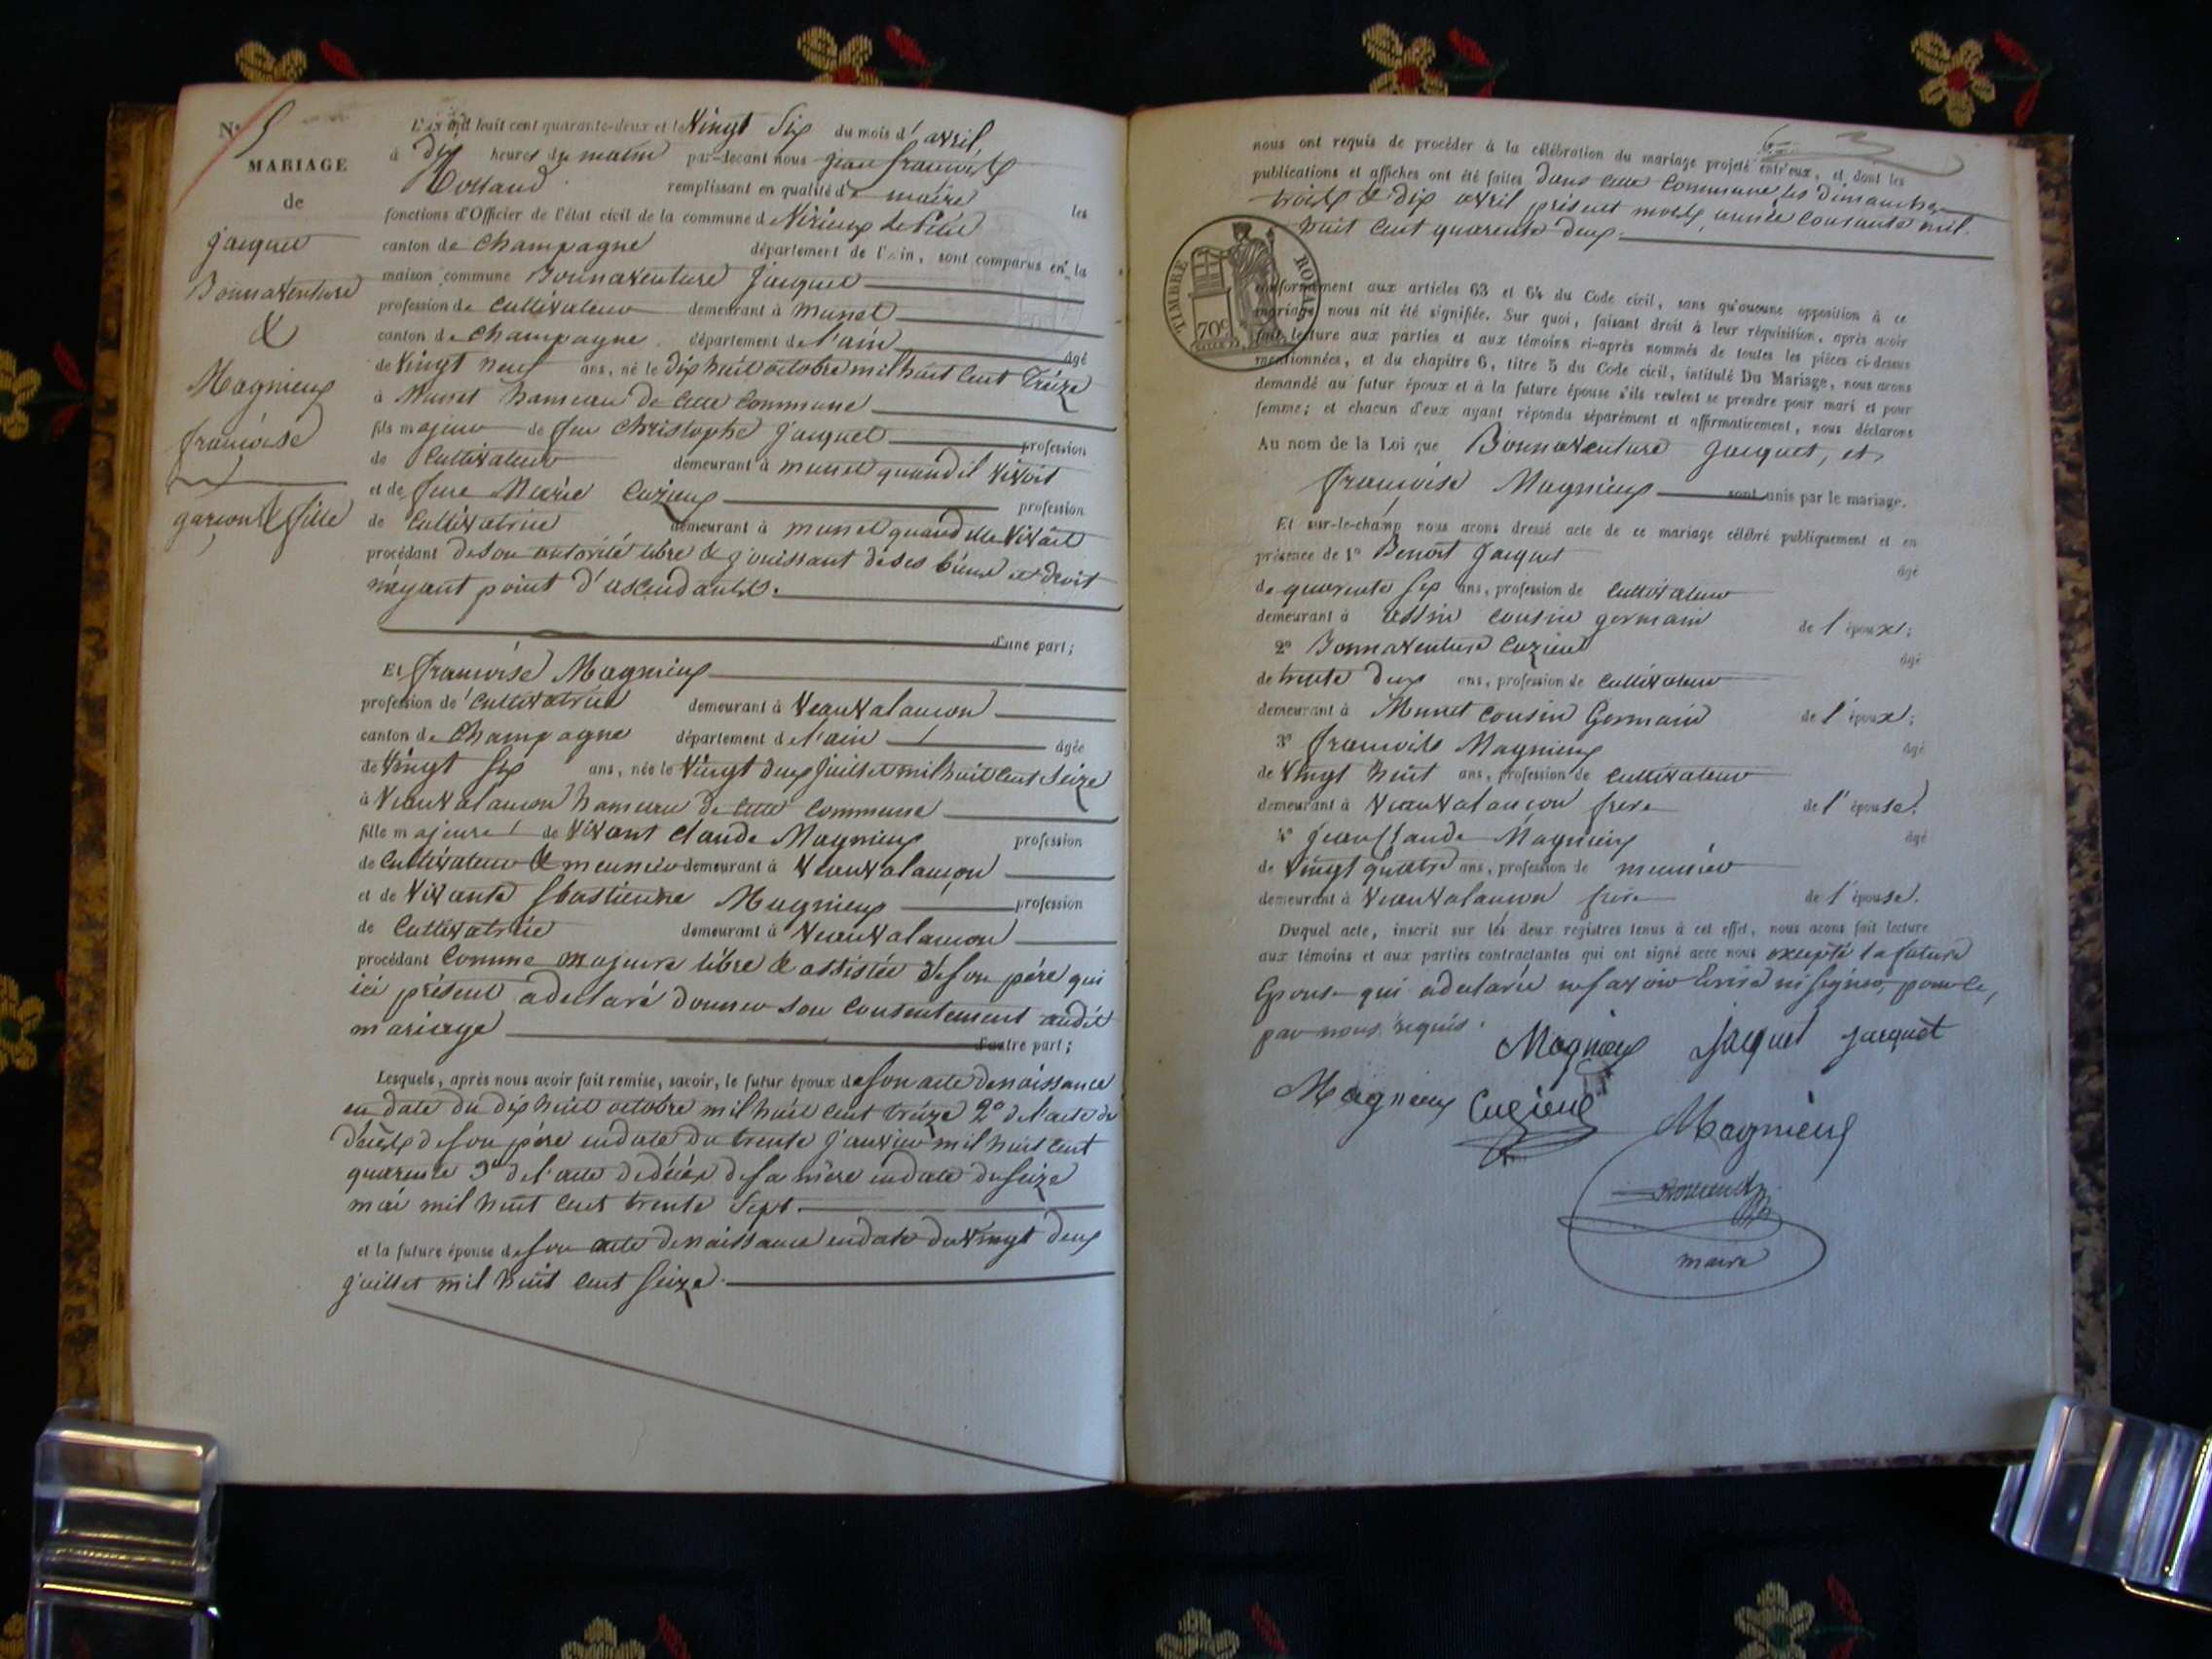 N° 5
MARIAGE
de
jacquet
Bonnaventure
&
Magnieux
françoise
garçon & fille
L'an mil huit cent quarante-deux et le Vingt Six du mois d'avril,
à dix heures du matin par-devant nous jean françois
Rolland remplissant en qualité de maire les
fonctions d'Officier de l'état civil de la commune de Virieux le Petit
canton de Champagne département de l'Ain, sont comparus en la
maison commune Bonnaventure Jacquet
profession de Cultivateur demeurant à Munet
canton de Champagne département de l'ain âgé
de Vingt neuf ans, né le dix huit octobre mil huit cent treize
à Munet hameau de cette Commune
fils majeur de feu Christophe Jacquet profession
de Cultivateur demeurant à munet quand il vivoit
et de feue Marie Cuzieux profession
de Cultivatrice demeurant à munet quand elle vivait
procédant de son autorité libre & jouissant de ses biens et droit
n'ayant point d'ascendants.
d'une part;
Et françoise Magnieux
profession de Cultivatrice demeurant à Veauvalancon
canton de Champagne département de l'ain âgée
de Vingt six ans, née le Vingt deux juillet mil huit cent seize
à Veauvalancon hameau de cette Commune
fille majeure de Vivant Claude Magnieux profession
de Cultivateur & meunier demeurant à Veauvalançon
et de Vivante Sbastienne Magnieux profession
de Cultivatrice demeurant à Veauvalancon
procédant Comme majeure libre & assistée de son père qui
ici présent a déclaré donner son consentement audit
mariage
d'autre part;
Lesquels, après nous avoir fait remise, savoir, le futur époux de son acte de naissance
en date du dix huit octobre mil huit cent treize 2° de l'acte de
décès de son père en date du trente janvier mil huit cent
quarante 3° de l'acte de décès de sa mère en date du seize
mai mil huit cent trente sept.
et la future épouse de son acte de naissance en date du Vingt deux
juillet mil huit cent seize.
6
nous ont requis de procéder à la célébration du mariage projeté entr'eux, et dont les
publications et affiches ont été faites dans cette Commune les dimanches
trois & dix avril présent mois, année courante mil
huit cent quarante deux.
TIMBRE ROYAL
70c
conformément aux articles 63 et 64 du Code civil, sans qu'aucune opposition à ce
mariage nous ait été signifiée. Sur quoi, faisant droit à leur réquisition, après avoir
fait lecture aux parties et aux témoins ci-après nommés de toutes les pièces ci-dessus
mentionnées, et du chapitre 6, titre 5 du Code civil, intitulé Du Mariage, nous avons
demandé au futur époux et à la future épouse s'ils veulent se prendre pour mari et pour
femme; et chacun d'eux ayant répondu séparément et affirmativement, nous déclarons
Au nom de la Loi que Bonnaventure Jacquet, et
françoise Magnieux sont unis par le mariage.
Et sur-le-champ nous avons dressé acte de ce mariage célébré publiquement et en
présence de 1° Benoit Jacquet âgé
de quarente six ans, profession de Cultivateur
demeurant à assin cousin germain de l'époux;
2° Bonnaventure Cuzieux âgé
de trente deux ans, profession de Cultivateur
demeurant à Munet Cousin Germain de l'époux;
3° francois Magnieux âgé
de Vingt huit ans, profession de Cultivateur
demeurant à Veauvalançon frère de l'épouse.
4° jean Claude Magnieux âgé
de Vingt quatre ans, profession de meunier
demeurant à Veauvalancon frère de l'épouse.
Duquel acte, inscrit sur les deux registres tenus à cet effet, nous avons fait lecture
aux témoins et aux parties contractantes qui ont signé avec nous excepté la future
Epouse qui a déclarée ne savoir Ecrire ni signer, pour ce,
par nous requis.
Magnieux Jacquet jacquet
Magnieux Cuzieux
Magnieux
maire